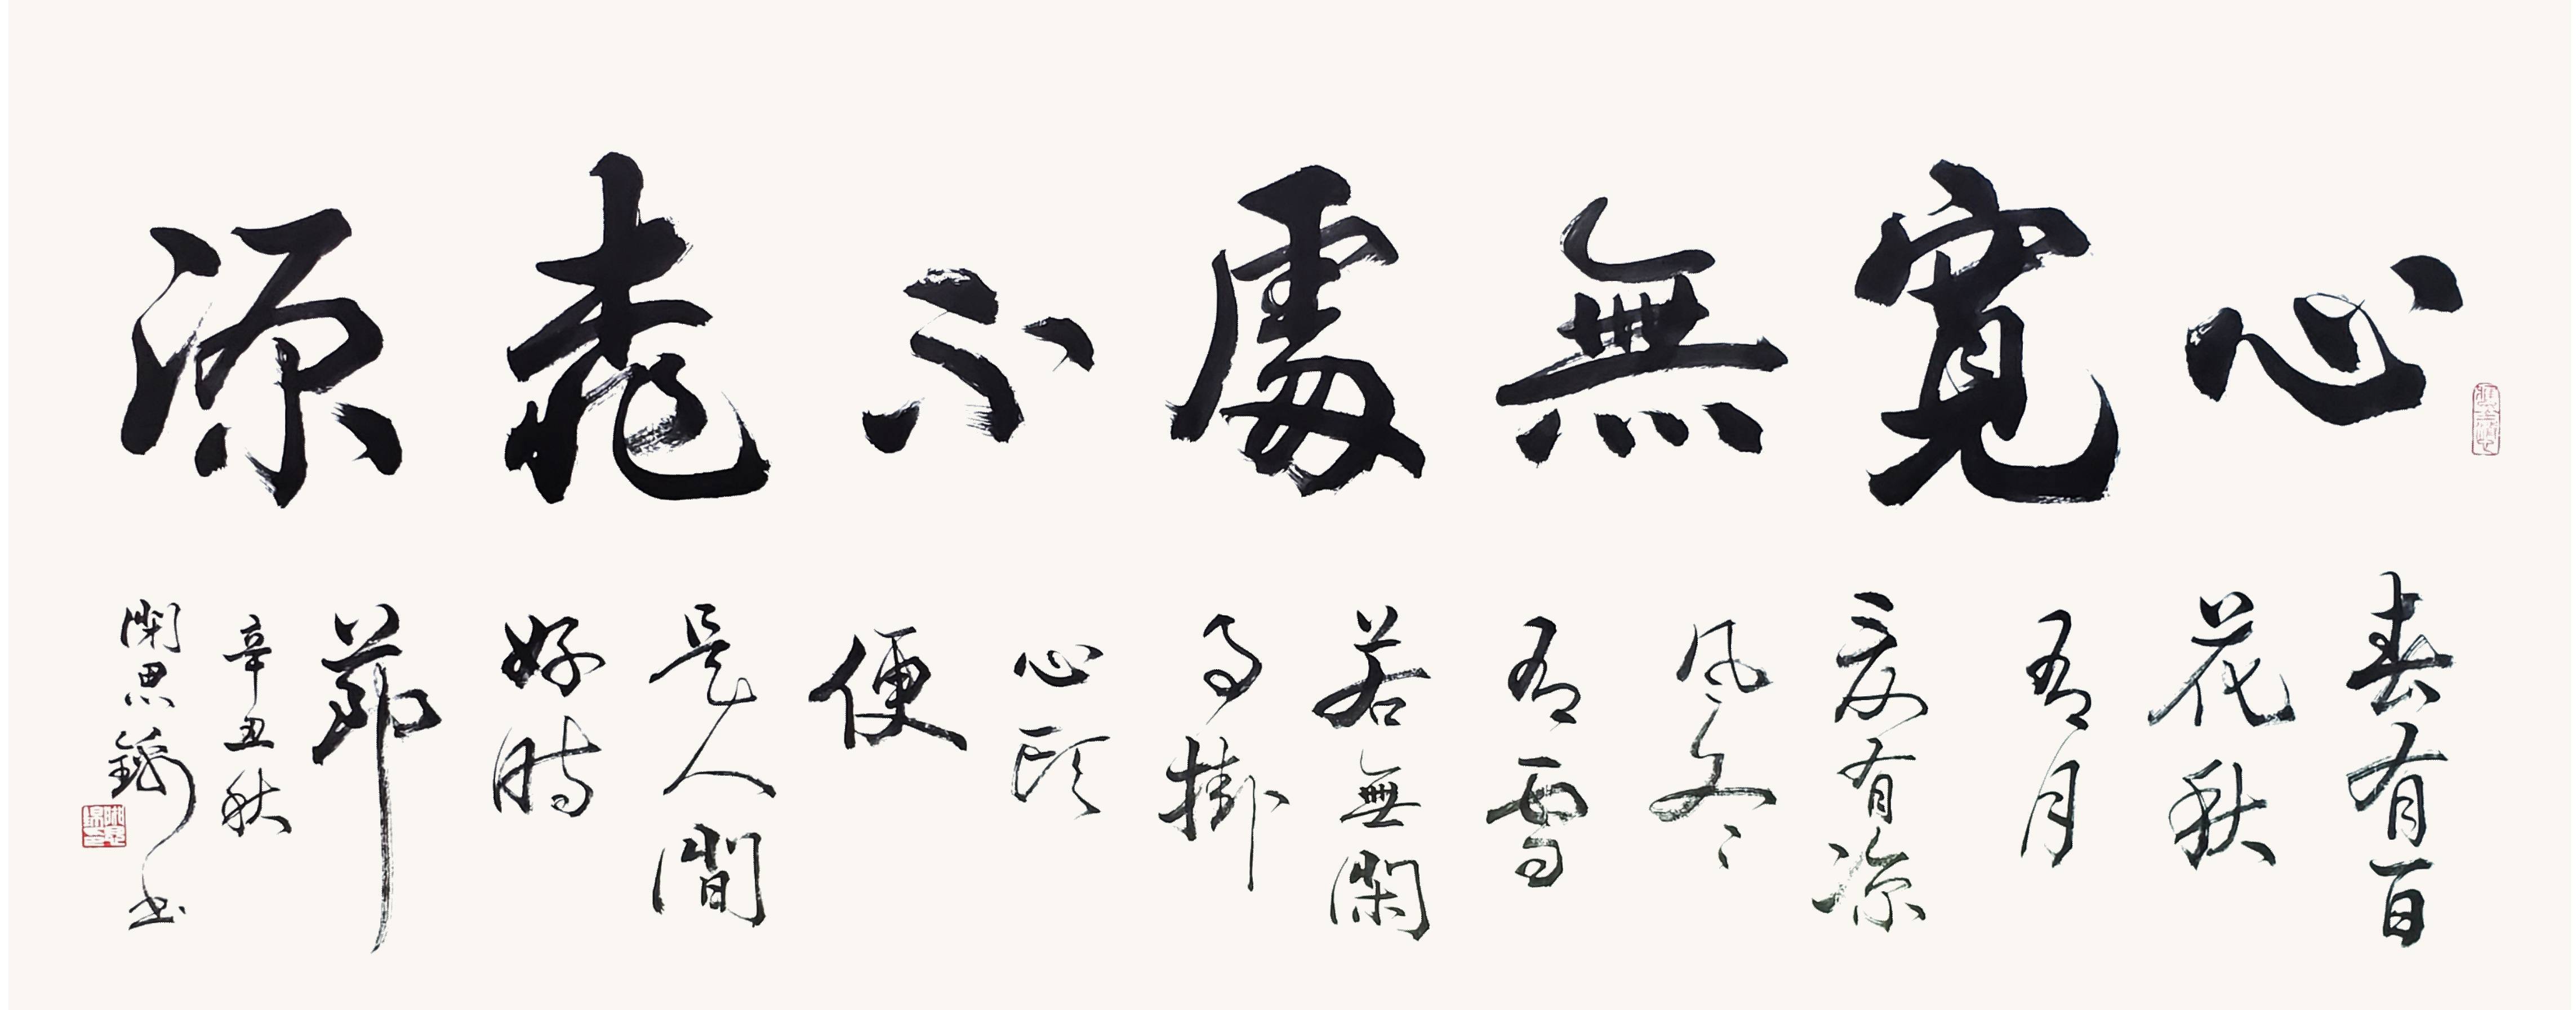 心寬無處不桃源
春有百
花秋
有月
夏有涼
風冬
有雪
若無閑
事掛
心頭
便
是人間
好時
節
辛丑秋
思 書